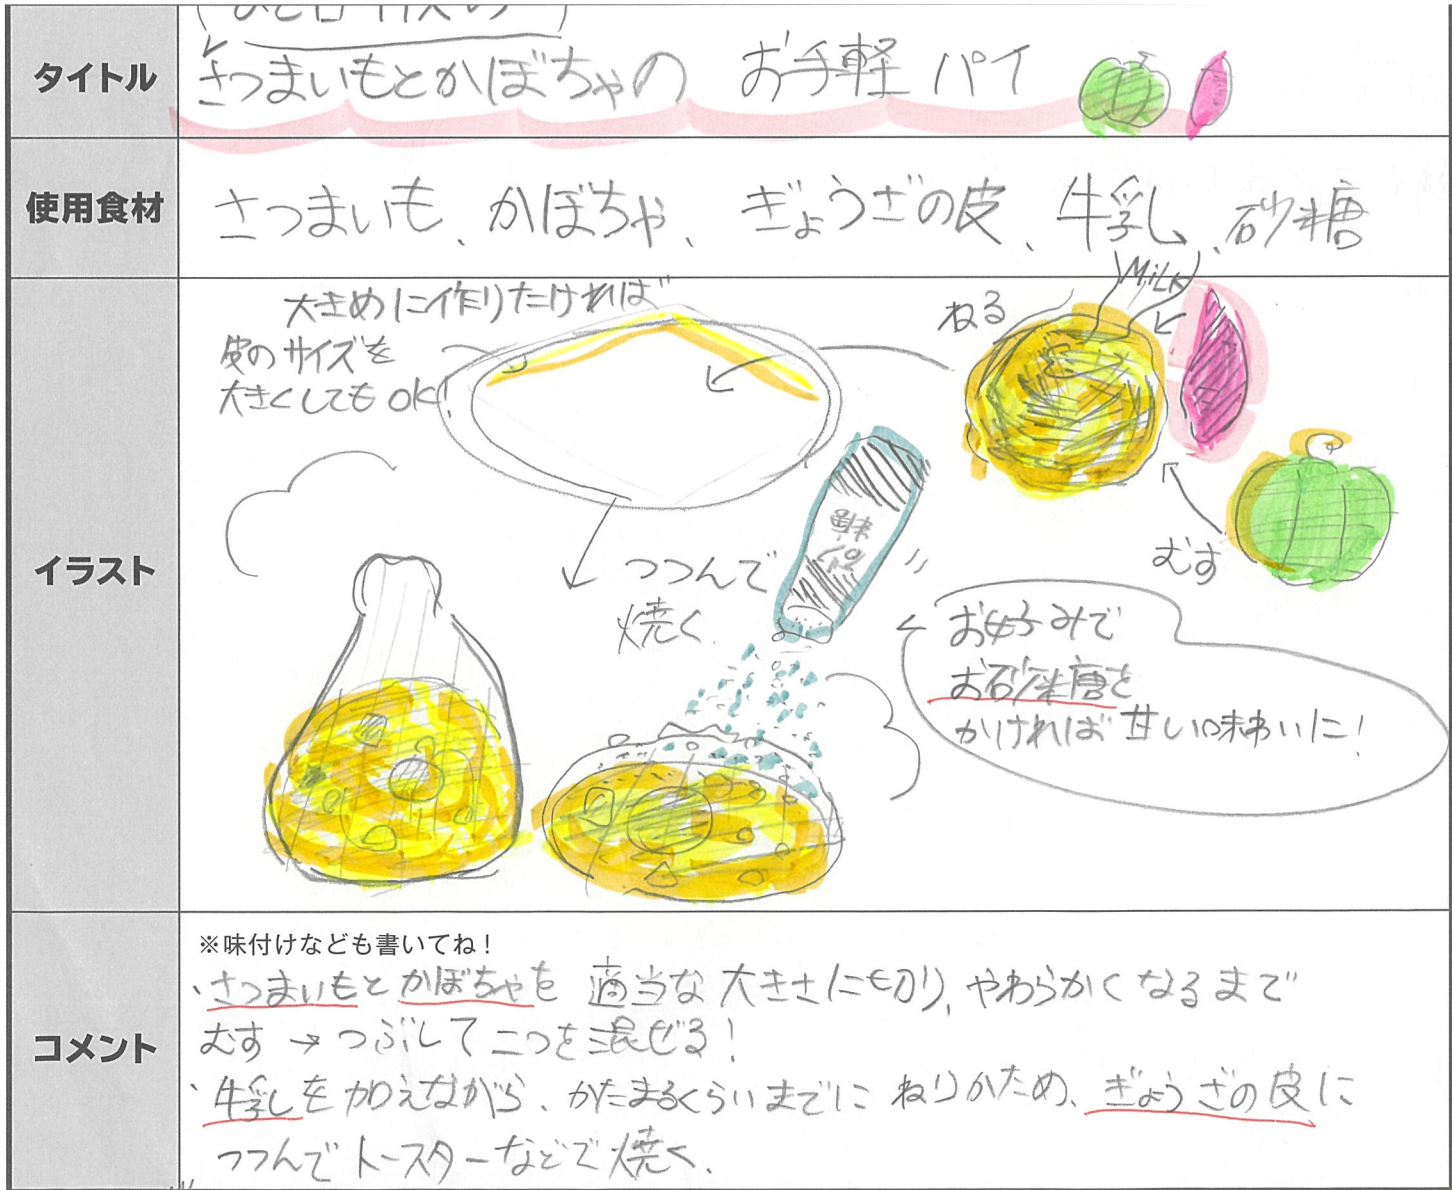 タイトル
ひと口サイズの
さつまいもとかぼちゃの お手軽 パイ
使用食材
さつまいも、かぼちゃ、ぎょうざの皮、牛乳、砂糖
イラスト
大きめに作りたければ
皮のサイズを
大きくしてもOK!
ねる
MiLK
むす
つつんで
焼く.
お好みで
お砂糖を
かければ甘い味わいに!
コメント
※味付けなども書いてね!
・さつまいもとかぼちゃを適当な大きさに切り、やわらかくなるまで
むす→つぶして二つを混ぜる!
・牛乳を加えながら、かたまるくらいまでにねりかため、ぎょうざの皮に
つつんでトースターなどで焼く.